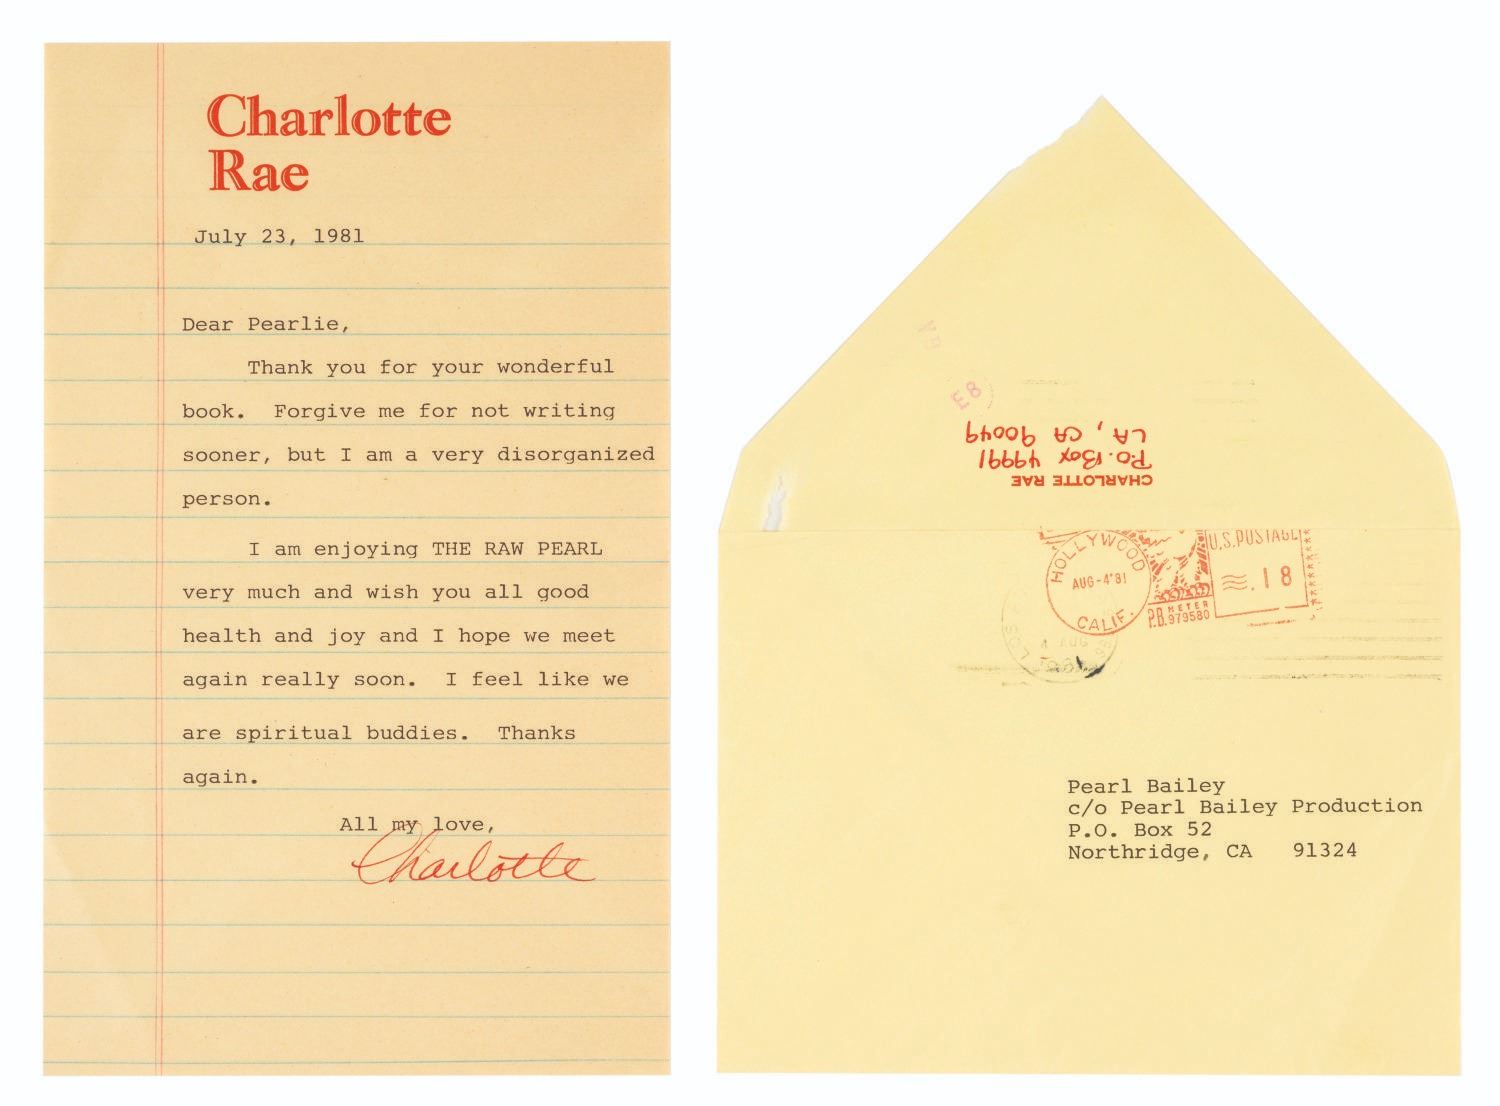 Charlotte
Rae
July 23, 1981
Dear Pearlie,
Thank you for your wonderful
book. Forgive me for not writing
sooner, but I am a very disorganized
person.
I am enjoying THE RAW PEARL
very much and wish you all good
health and joy and I hope we meet
again really soon. I feel like we
are spiritual buddies. Thanks
again.
All my love,
Charlotte
CHARLOTTE RAE
P.O. Box 49991
LA, CA 90049
E8
HOLLYWOOD
AUG-4'81
CALIF.
U.S. POSTAGE
.18
P.B. METER
979580
4 AUG
Pearl Bailey
c/o Pearl Bailey Production
P.O. Box 52
Northridge, CA 91324